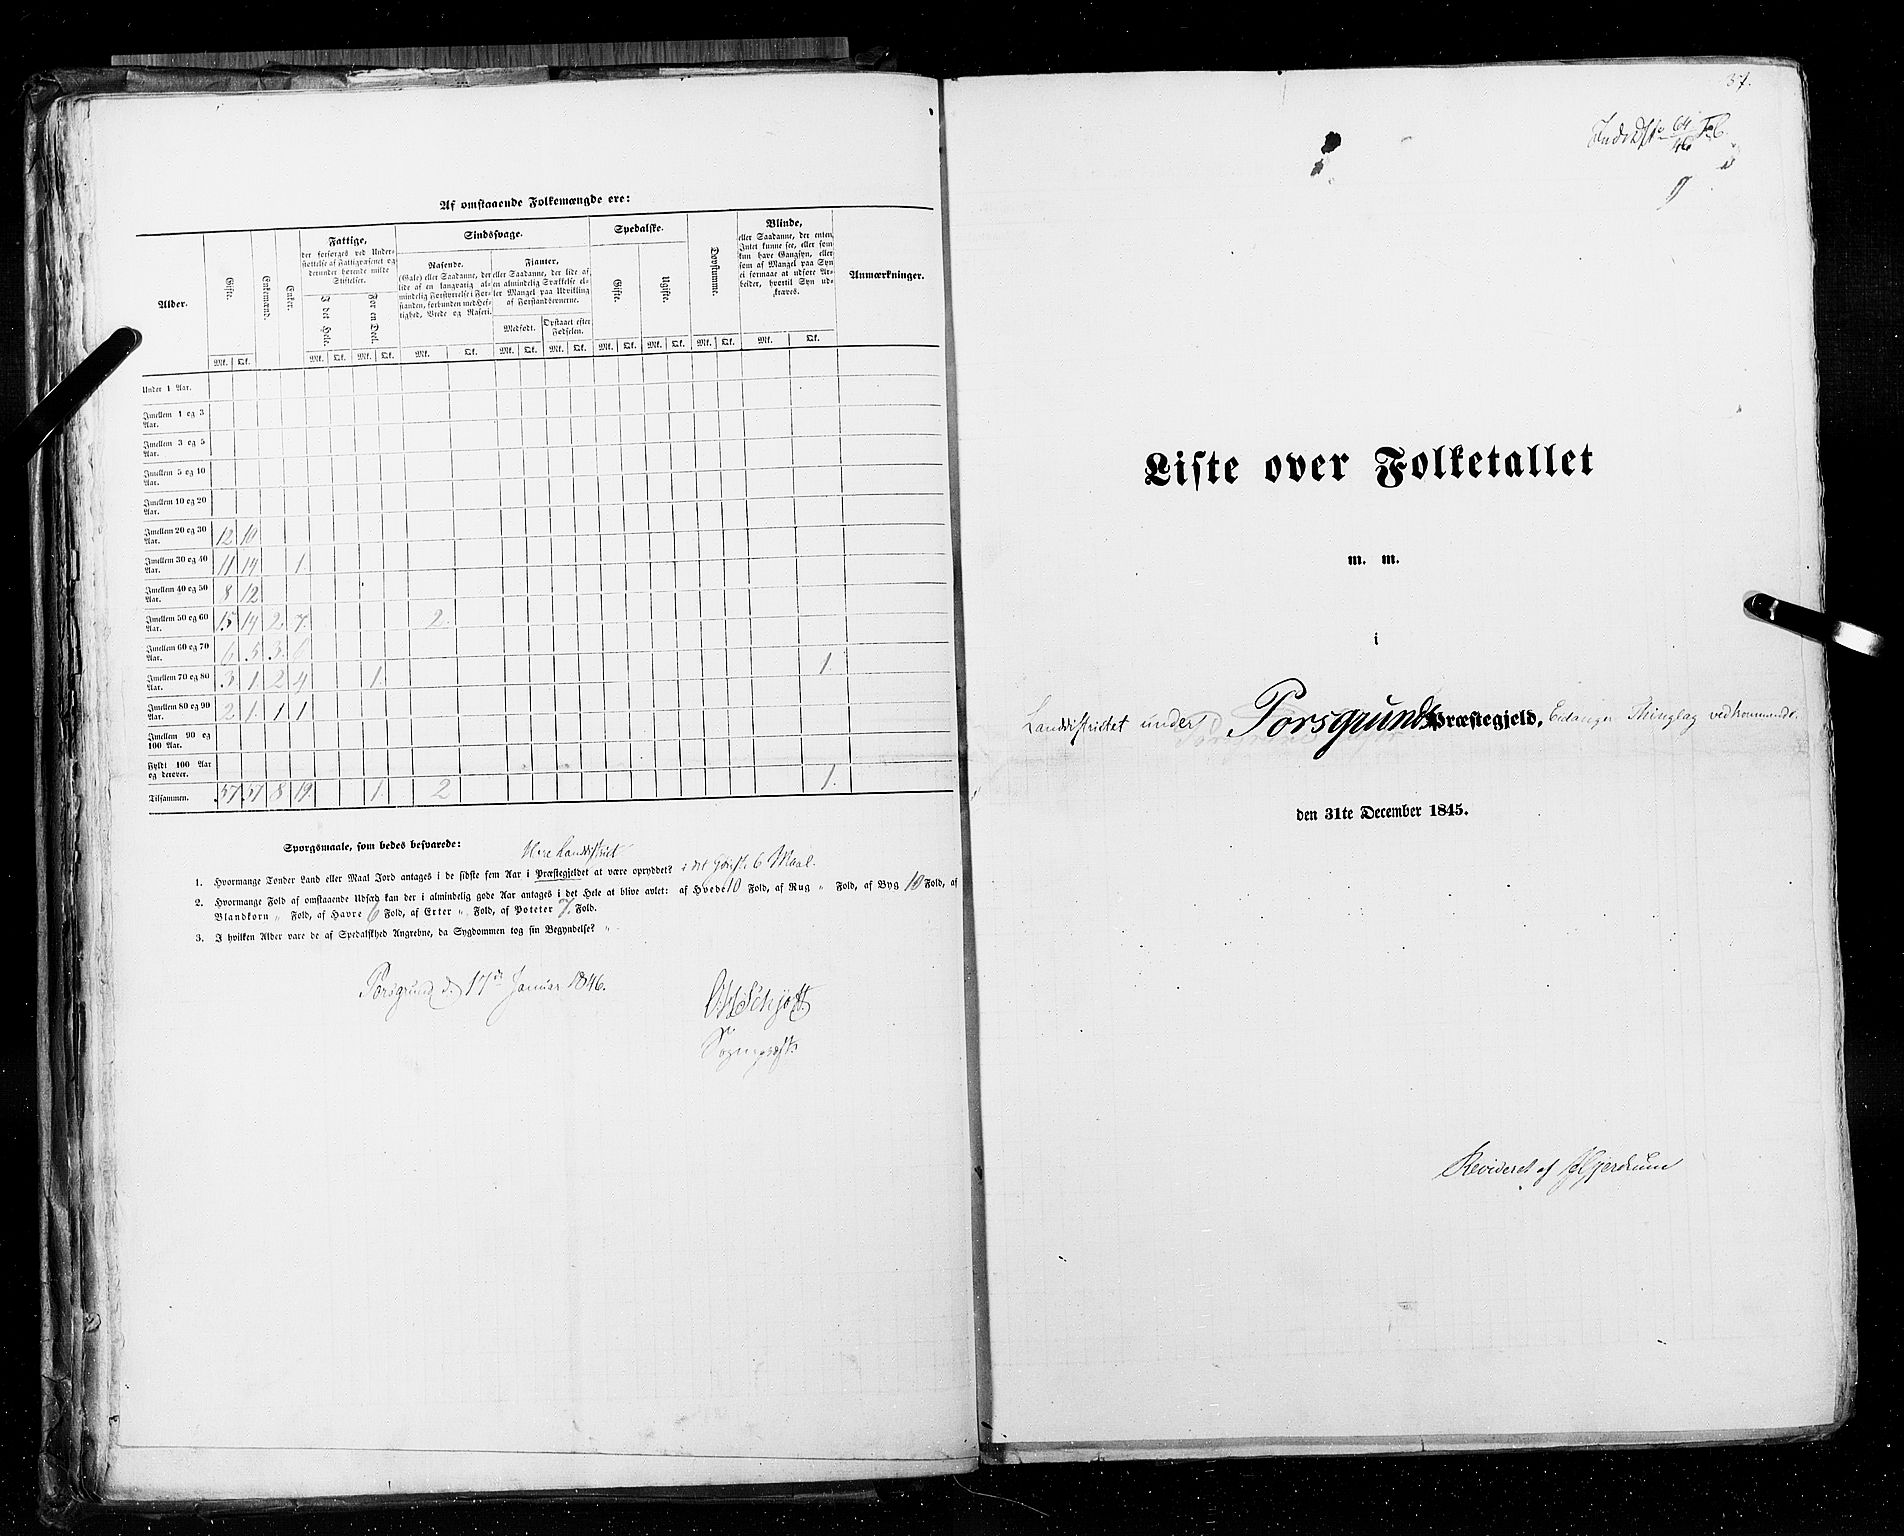 Af omstaaende Folkemængde ere:
Alder.
Gifte.
Enkemænd.
Enker.
Fattige,
der forsørges ved Under-
støttelse af Fattigvæsenet og
derunder hørende milde
Stiftelser.
I det Hele.
For en Deel.
Sindssvage.
Rasende.
(Gale) eller Saadanne, der
lide af en langvarig al-
mindelig Forstyrrelse i For-
standen, forbunden med Hef-
tighed, Vrede og Raseri.
Fjanter,
eller Saadanne, der lide af
en almindelig Svækkelse el-
ler Mangel paa Udvikling
af Forstandsevnerne.
Medfødt.
Opstaaet efter Fødselen.
Spedalske.
Gifte.
Ugifte.
Døvstumme.
Blinde,
eller Saadanne, der enten
Intet kunne see, eller som
kun have Gangsyn, eller
som af Mangel paa Syn
ei formaae at udføre Ar-
beider, hvortil Syn ud-
kræves.
Anmærkninger.
Mk. Qk. Mk. Qk. Mk. Qk. Mk. Qk. Mk. Qk. Mk. Qk. Mk. Qk. Mk. Qk. Mk. Qk. Mk. Qk.
Under 1 Aar.
Imellem 1 og 3 Aar.
Imellem 3 og 5 Aar.
Imellem 5 og 10 Aar.
Imellem 10 og 20 Aar.
Imellem 20 og 30 Aar. 12 10
Imellem 30 og 40 Aar. 11 14 1.
Imellem 40 og 50 Aar. 8 12
Imellem 50 og 60 Aar. 15 14 2. 7. 2.
Imellem 60 og 70 Aar. 6 5 3. 6
Imellem 70 og 80 Aar. 3 1 2 4 1. 1.
Imellem 80 og 90 Aar. 2 1. 1 1
Imellem 90 og 100 Aar.
Fyldt 100 Aar og derover.
Tilsammen. 57 57 8 19. 1. 2 1.
Spørgsmaale, som bedes besvarede:
Landdistriet
1. Hvormange Tønder Land eller Maal Jord antages i de sidste fem Aar i Præstegjeldet at være opryddet? i det 6 Maal.
2. Hvormange Fold af omstaaende Udsæd kan der i almindelig gode Aar antages i det Hele at blive avlet: af Hvede 10 Fold, af Rug " Fold, af Byg 10 Fold, af
Blandkorn " Fold, af Havre 6 Fold, af Erter " Fold, af Poteter 7. Fold.
3. I hvilken Alder vare de af Spedalskhed Angrebne, da Sygdommen tog sin Begyndelse? "
Porsgrund d. 17de Januar 1846.
Schjøtt
Sognepræst
37.
64
46
Liste over Folketallet
m. m.
i
Landdistrictet under Porsgrunds Præstegjeld, Eidanger Thinglag vedkommende.
den 31te December 1845.
Revideret af Hjerdrum